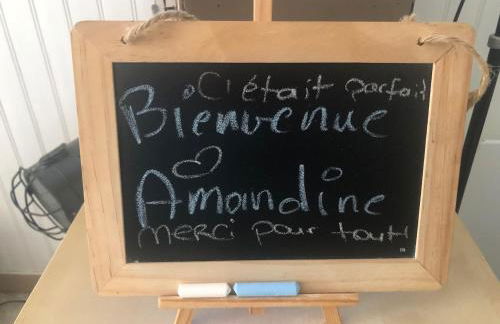 C' était parfait
Bienvenue
Amandine
merci pour tout!